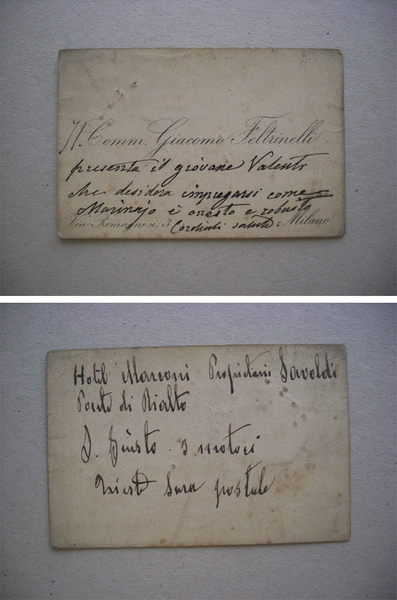 Il Comm. Giacomo Feltrinelli
presenta il giovane Valenti
che desidera impiegarsi come
Marinajo è onesto e robusto
Via Romagnosi, 3 Cordiali saluti Milano
Hotel Marconi Proprietario Savoldi
Ponte di Rialto
S. Giusto 3 motori
postale